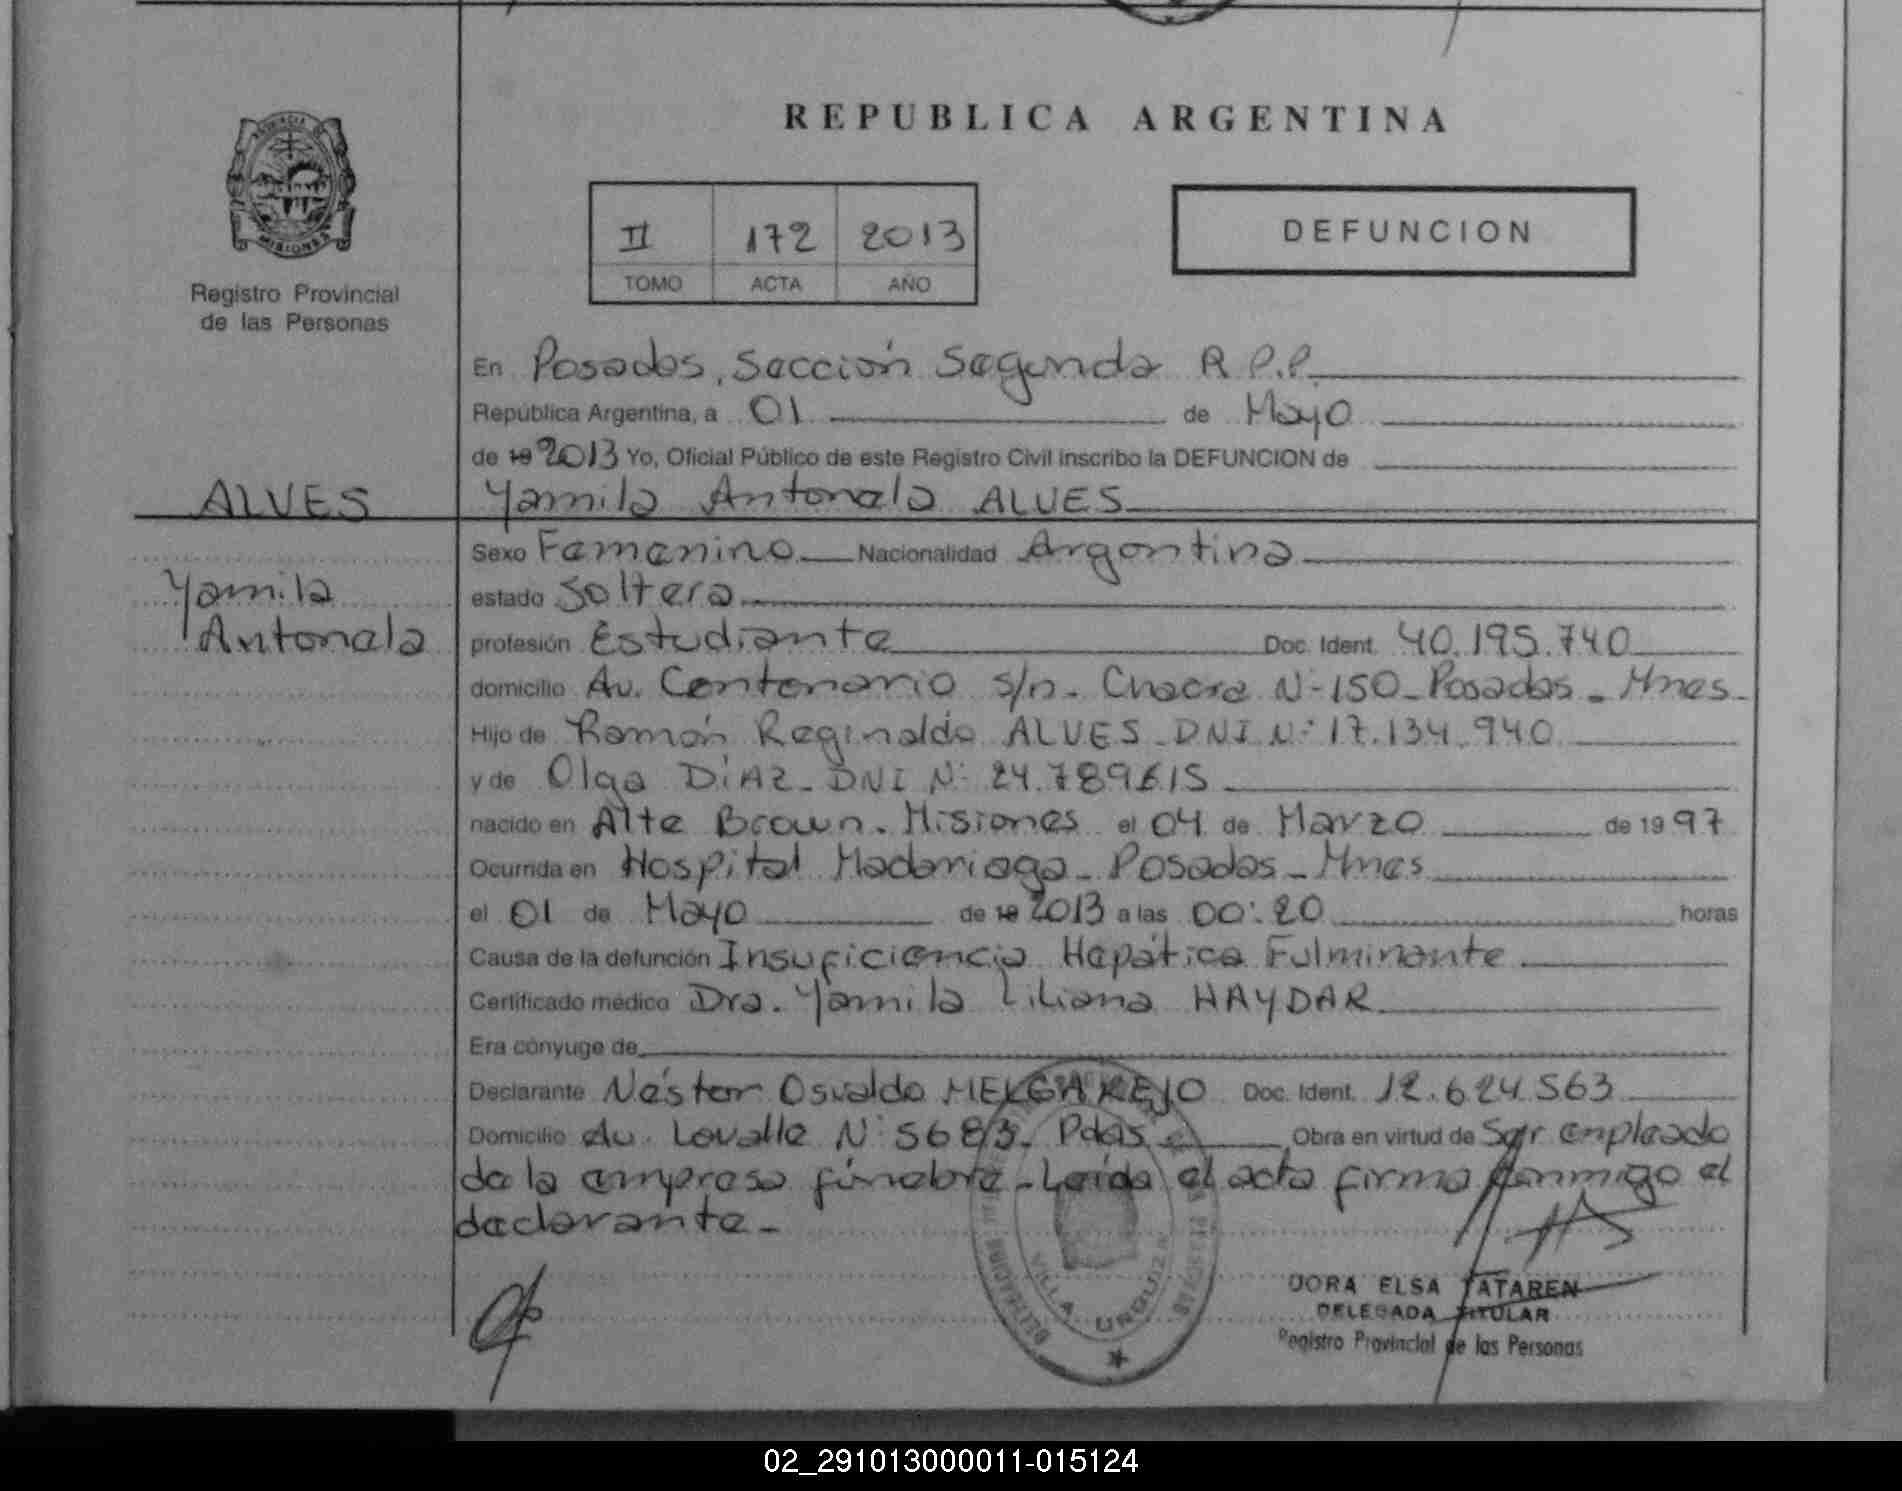 REPUBLICA ARGENTINA
MISIONES
Registro Provincial
de las Personas
II 172 2013
TOMO ACTA AÑO
DEFUNCION
En Posadas, Sección Segunda R.P.P.
República Argentina, a 01 de Mayo
de 19 2013 Yo, Oficial Público de este Registro Civil inscribo la DEFUNCION de
ALVES
Yamila Antonela ALVES
Yamila
Antonela
Sexo Femenino Nacionalidad Argentina
estado Soltera
profesión Estudiante Doc. Ident. 40.195.740
domicilio Av. Centenario s/n - Chacra N° 150 - Posadas - Mnes -
Hijo de Ramón Reginaldo ALVES - DNI N° 17.134.940
y de Olga DÍAZ - DNI N° 24.789615
nacido en Alte Brown - Misiones el 04 de Marzo de 1997
Ocurrida en Hospital Madariaga - Posadas - Mnes
el 01 de Mayo de 19 2013 a las 00:20 horas
Causa de la defunción Insuficiencia Hepática Fulminante
Certificado médico Dra. Yamila Liliana HAYDAR
Era cónyuge de
Declarante Néstor Osvaldo MELGAREJO Doc. Ident. 12.624.563
Domicilio Av. Lavalle N° 5683 - Pdas - Obra en virtud de Ser empleado
de la empresa fúnebre - Leída el acta firma conmigo el
declarante -
VILLA URQUIZA
DORA ELSA TATAREN
DELEGADA TITULAR
Registro Provincial de las Personas
02_291013000011-015124